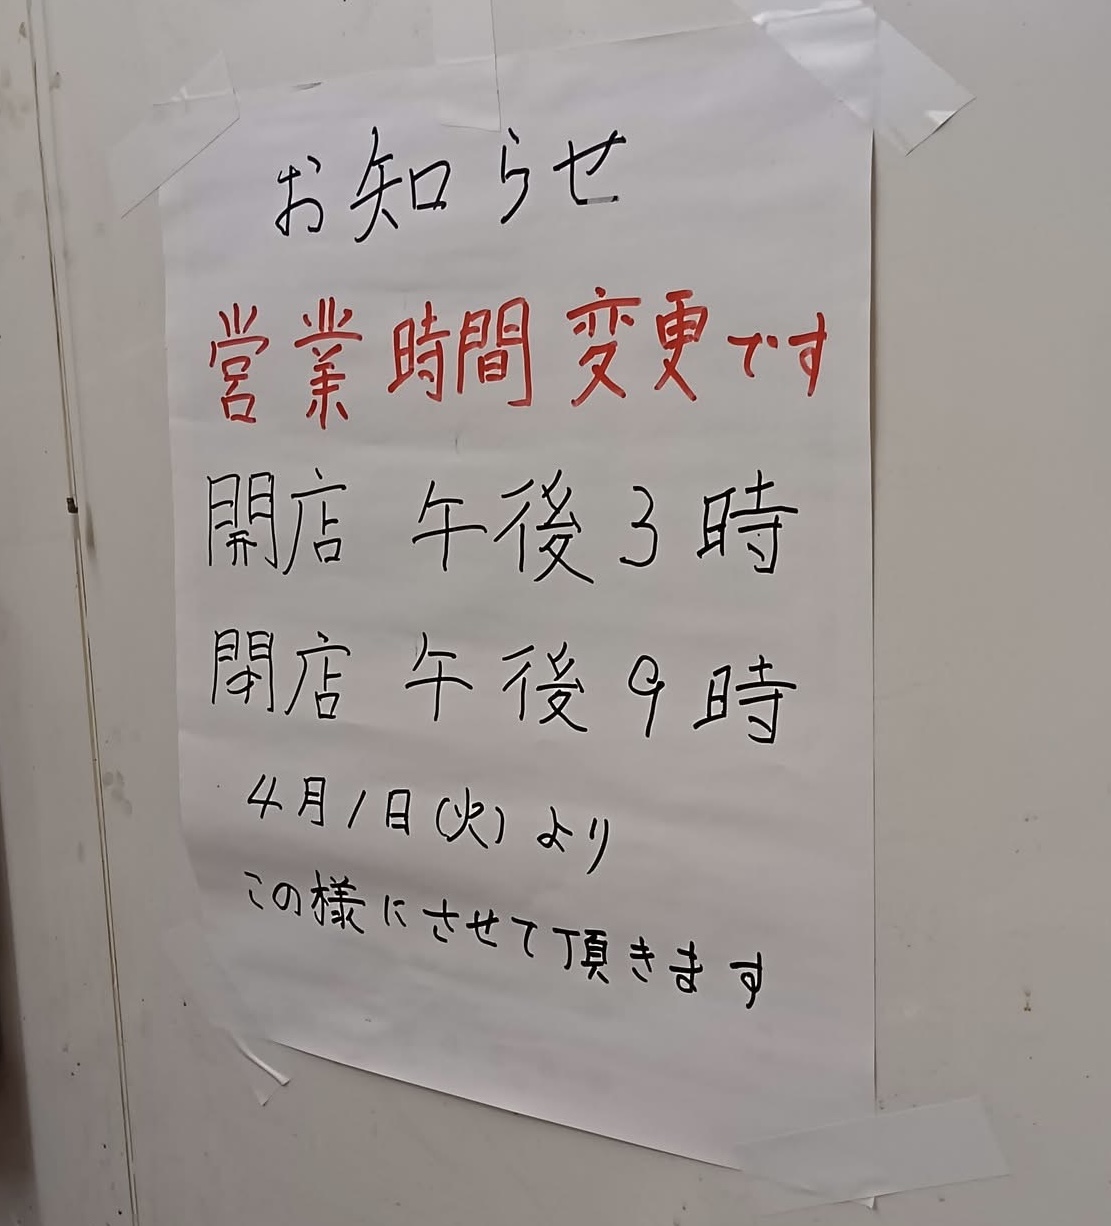 お知らせ
営業時間変更です
開店 午後3時
閉店 午後9時
4月1日(火)より
この様にさせて頂きます